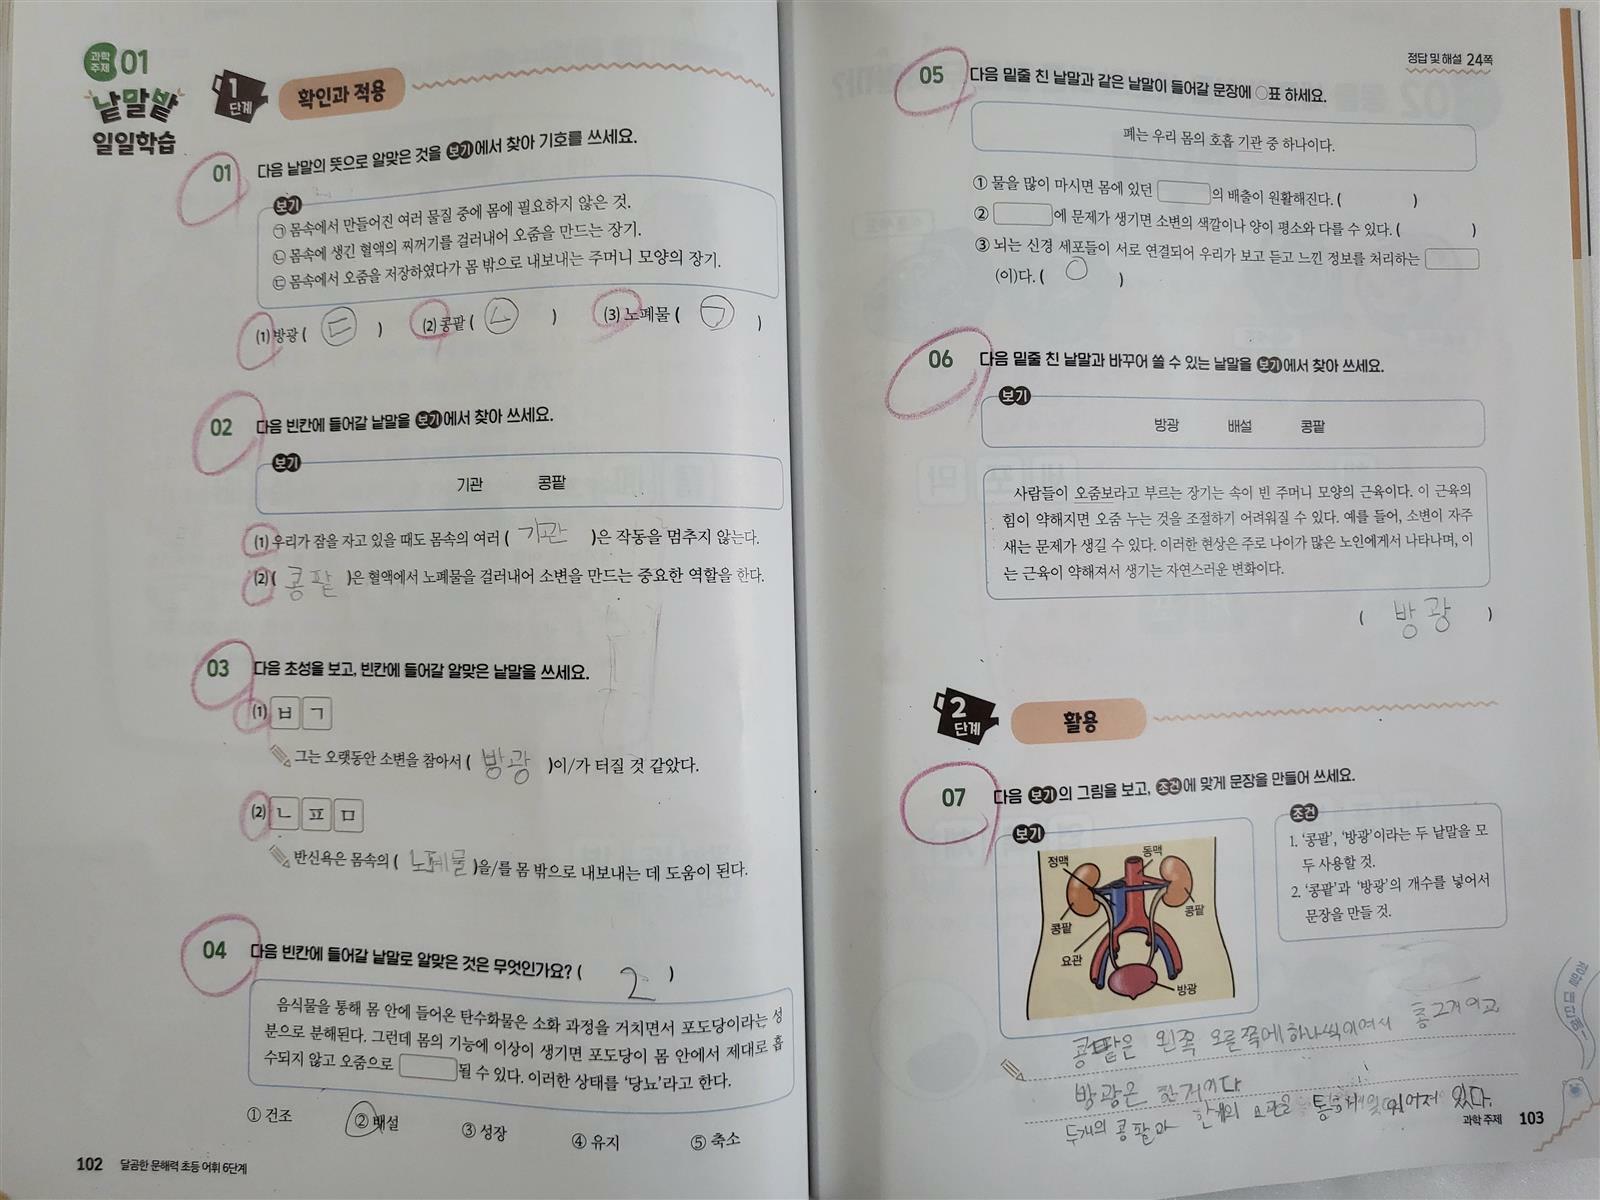 과학 주제 01
낱말밭
일일학습
1단계 확인과 적용
01 다음 낱말의 뜻으로 알맞은 것을 보기에서 찾아 기호를 쓰세요.
보기
㉠ 몸속에서 만들어진 여러 물질 중에 몸에 필요하지 않은 것.
㉡ 몸속에 생긴 혈액의 찌꺼기를 걸러내어 오줌을 만드는 장기.
㉢ 몸속에서 오줌을 저장하였다가 몸 밖으로 내보내는 주머니 모양의 장기.
(1) 방광 ( ㉢ ) (2) 콩팥 ( ㉡ ) (3) 노폐물 ( ㉠ )
02 다음 빈칸에 들어갈 낱말을 보기에서 찾아 쓰세요.
보기
기관 콩팥
(1) 우리가 잠을 자고 있을 때도 몸속의 여러 ( 기관 )은 작동을 멈추지 않는다.
(2) ( 콩팥 )은 혈액에서 노폐물을 걸러내어 소변을 만드는 중요한 역할을 한다.
03 다음 초성을 보고, 빈칸에 들어갈 알맞은 낱말을 쓰세요.
(1) ㅂ ㄱ
그는 오랫동안 소변을 참아서 ( 방광 )이/가 터질 것 같았다.
(2) ㄴ ㅍ ㅁ
반신욕은 몸속의 ( 노폐물 )을/를 몸 밖으로 내보내는 데 도움이 된다.
04 다음 빈칸에 들어갈 낱말로 알맞은 것은 무엇인가요? ( 2 )
음식물을 통해 몸 안에 들어온 탄수화물은 소화 과정을 거치면서 포도당이라는 성
분으로 분해된다. 그런데 몸의 기능에 이상이 생기면 포도당이 몸 안에서 제대로 흡
수되지 않고 오줌으로 될 수 있다. 이러한 상태를 '당뇨'라고 한다.
① 건조 ② 배설 ③ 성장 ④ 유지 ⑤ 축소
102 달곰한 문해력 초등 어휘 6단계
정답 및 해설 24쪽
05 다음 밑줄 친 낱말과 같은 낱말이 들어갈 문장에 ○표 하세요.
폐는 우리 몸의 호흡 기관 중 하나이다.
① 물을 많이 마시면 몸에 있던 의 배출이 원활해진다. ( )
② 에 문제가 생기면 소변의 색깔이나 양이 평소와 다를 수 있다. ( )
③ 뇌는 신경 세포들이 서로 연결되어 우리가 보고 듣고 느낀 정보를 처리하는
(이)다. ( ○ )
06 다음 밑줄 친 낱말과 바꾸어 쓸 수 있는 낱말을 보기에서 찾아 쓰세요.
보기
방광 배설 콩팥
사람들이 오줌보라고 부르는 장기는 속이 빈 주머니 모양의 근육이다. 이 근육의
힘이 약해지면 오줌 누는 것을 조절하기 어려워질 수 있다. 예를 들어, 소변이 자주
새는 문제가 생길 수 있다. 이러한 현상은 주로 나이가 많은 노인에게서 나타나며, 이
는 근육이 약해져서 생기는 자연스러운 변화이다.
( 방광 )
2단계 활용
07 다음 보기의 그림을 보고, 조건에 맞게 문장을 만들어 쓰세요.
보기
정맥 동맥
콩팥 콩팥
요관
방광
조건
1. '콩팥', '방광'이라는 두 낱말을 모
두 사용할 것.
2. '콩팥'과 '방광'의 개수를 넣어서
문장을 만들 것.
콩팥은 왼쪽 오른쪽에 하나씩이여서 총 2개이고
방광은 한개이다
두개의 콩팥과 한개의 요관을 통해 이어져 있다.
과학 주제 103